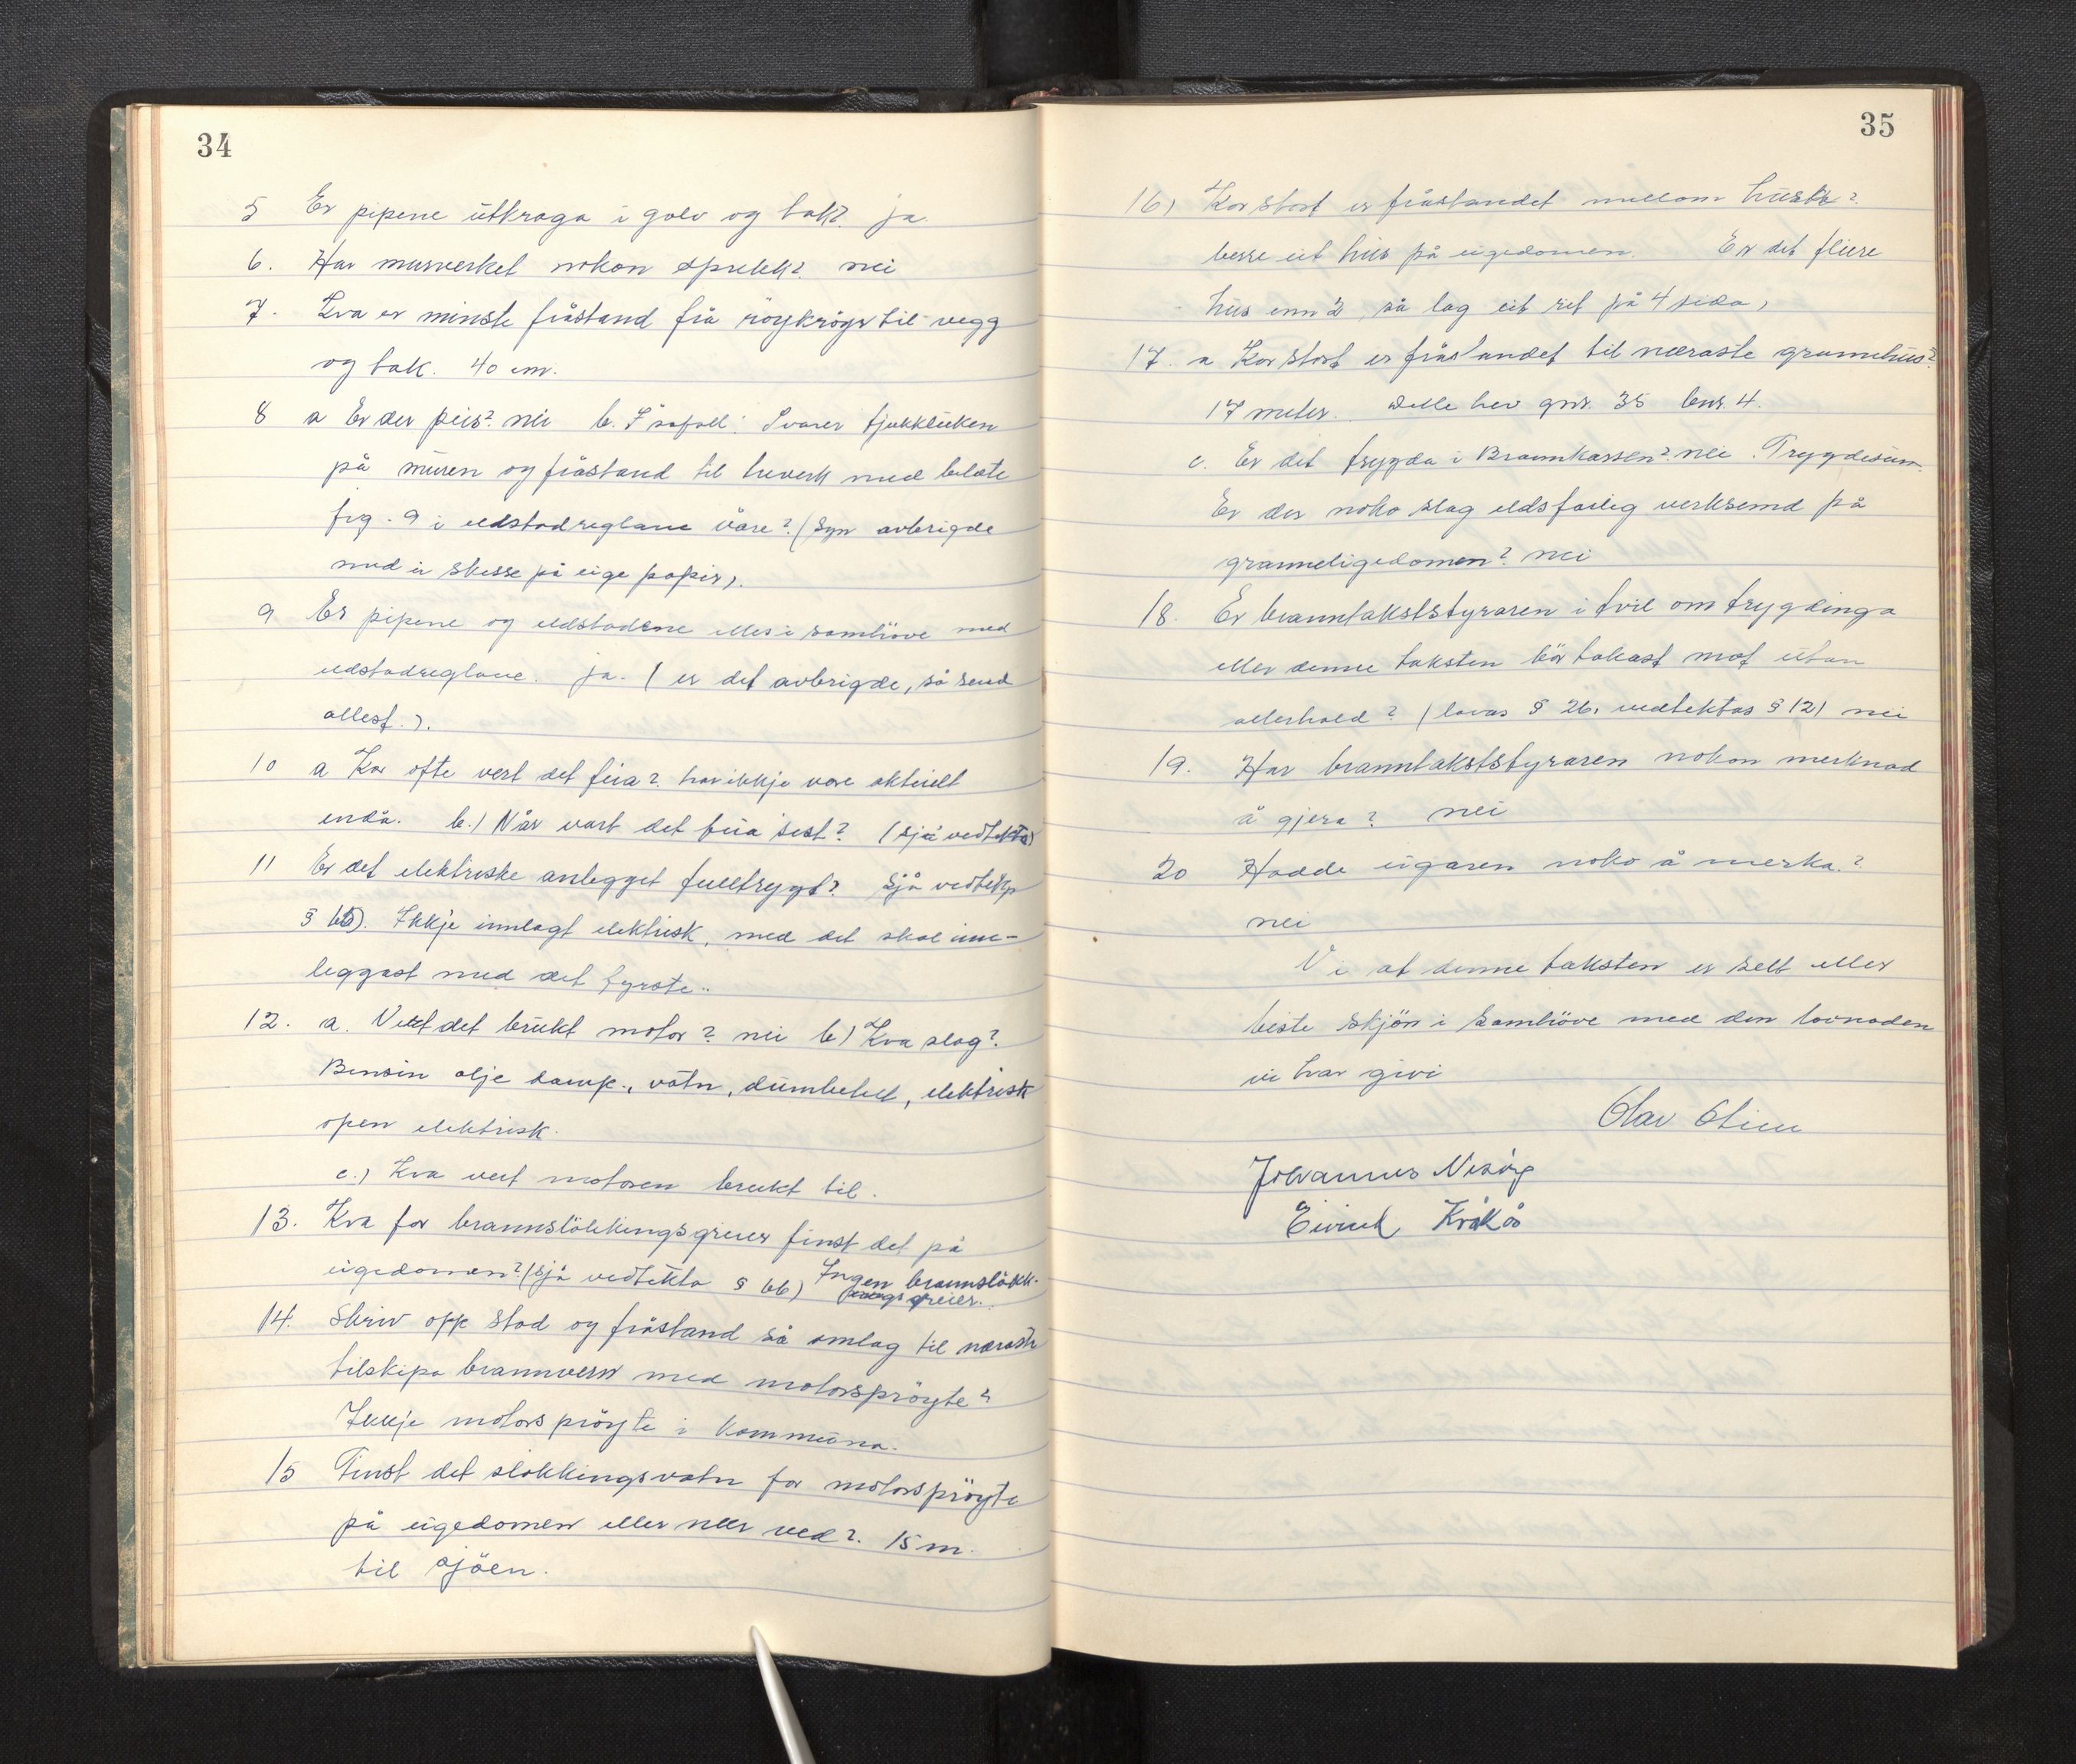 34
5 Er pipene utkraga i golv og tak? ja.
6. Har murverket nokon sprekk? nei
7. Kva er minste fråstand frå röykrör til vegg
og tak. 40 cm.
8 a Er der peis? nei b. I såfall: Svarer tjukkleiken
på muren og fråstand til treverk med bilete
fig. 9 i eldstadreglane våre? (Syn avbrigde
med ei skisse på eige papir).
9 Er pipene og eldstadene elles i samhöve med
eldstadreglane. ja. ( er det avbrigde, så send
allest.).
10 a Kor ofte vert det feia? har ikkje vore aktuelt
endå. b.) Når vart det feia sist? (sjå vedtekta)
11 Er det elektriske anlegget fulltrygt? Sjå vedtekt
§ 6b). Ikkje innlagt elektrisk, med det skal inn-
leggast med det fyrste..
12. a. Vert det brukt motor? nei b) Kva slag?
Bensin olje damp., vatn, elektrisk
open elektrisk.
c.) Kva vert motoren brukt til.
13. Kva for brannslökkingsgreier finst det på
eigedomen? (Sjå vedtekta § 6b) Ingen brannslökk-
ings greier.
14. Skriv opp stad og fråstand så omlag til næraste
tilskipa brannvern med motorspröyte?
Ikkje motorspröyte i kommuna.
15 Finst det slökkingsvatn for motorspröyte
på eigedomen eller nær ved?. 15 m.
til sjöen.
35
16) Kor stort er fråstandet mellom husa?
berre eit hus på eigedomen. Er det fleire
hus enn 2 så lag eit rit på 4 sida)
17. a Kor stort er fråstandet til næraste grannehus?
17 meter. Dette hev gnr. 35 bnr. 4.
c. Er det trygda i Brannkassen? nei. Trygdesum.
Er der noko slag eldsfarlig verksemd på
granneeigedomen? nei
18. Er branntakststyraren i tvil om trygdinga
eller denne taksten bör takast mot utan
atterhald? (lovas § 26, vedtektas § 12) nei
19. Har branntakststyraren nokon merknad
å gjera? nei
20 Hadde eigaren noko å merka?
nei
Vi at denne taksten er sett etter
beste skjön i samhöve med den lovnaden
vi har givi
Olav
Johannes
Eivind Kråkås